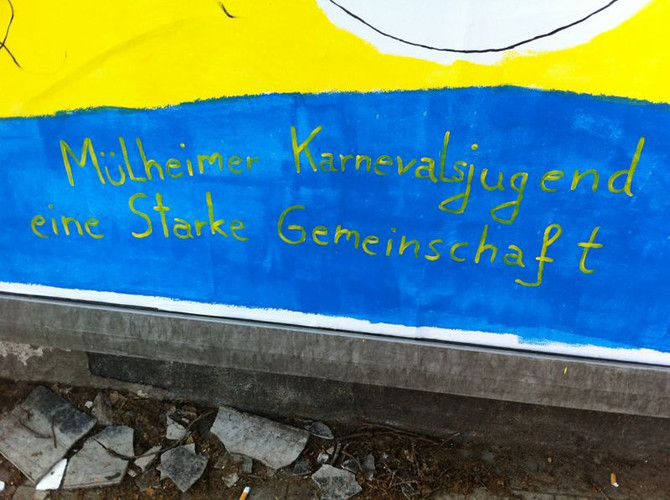 Mülheimer Karnevalsjugend
eine Starke Gemeinschaft